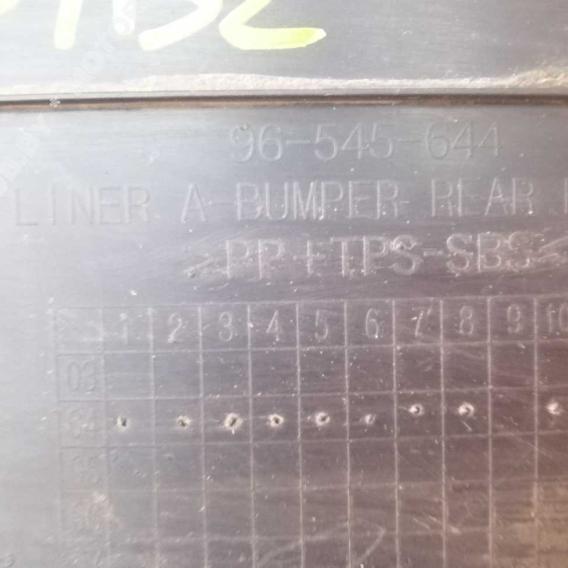 96-545-644
LINER A-BUMPER REAR
>PP+TPS-SBS<
1 2 3 4 5 6 7 8 9 10
03
04